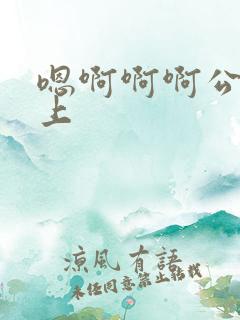 嗯啊啊啊公
上
凉风有語
未经同意禁止转载